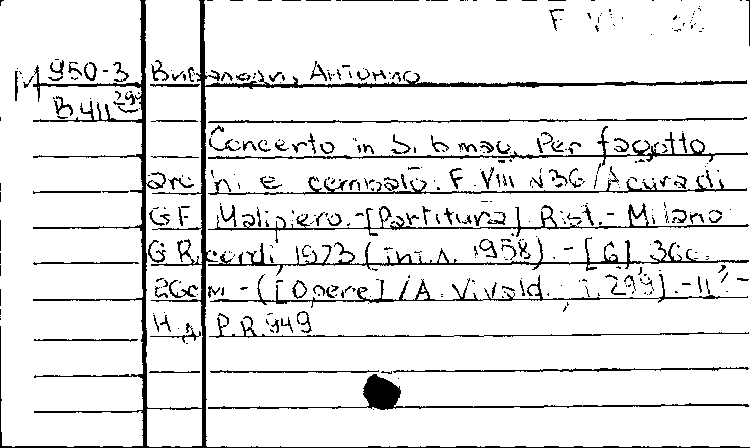 F VIII 36
M 950-3 Вивалди, Антонио
B.411 299
Concerto in Si b mag. Per fagotto,
archi e cembalo. F. VIII N36 / A cura di
G F Malipiero. - [Partitura] Rist. - Milano
G Ricordi, 1973 (int. 1958). - [6], 36c.
26cм - ([Opere] / A. Vivaldi, T. 299). - 11' -
Н.Д. P.R. 949